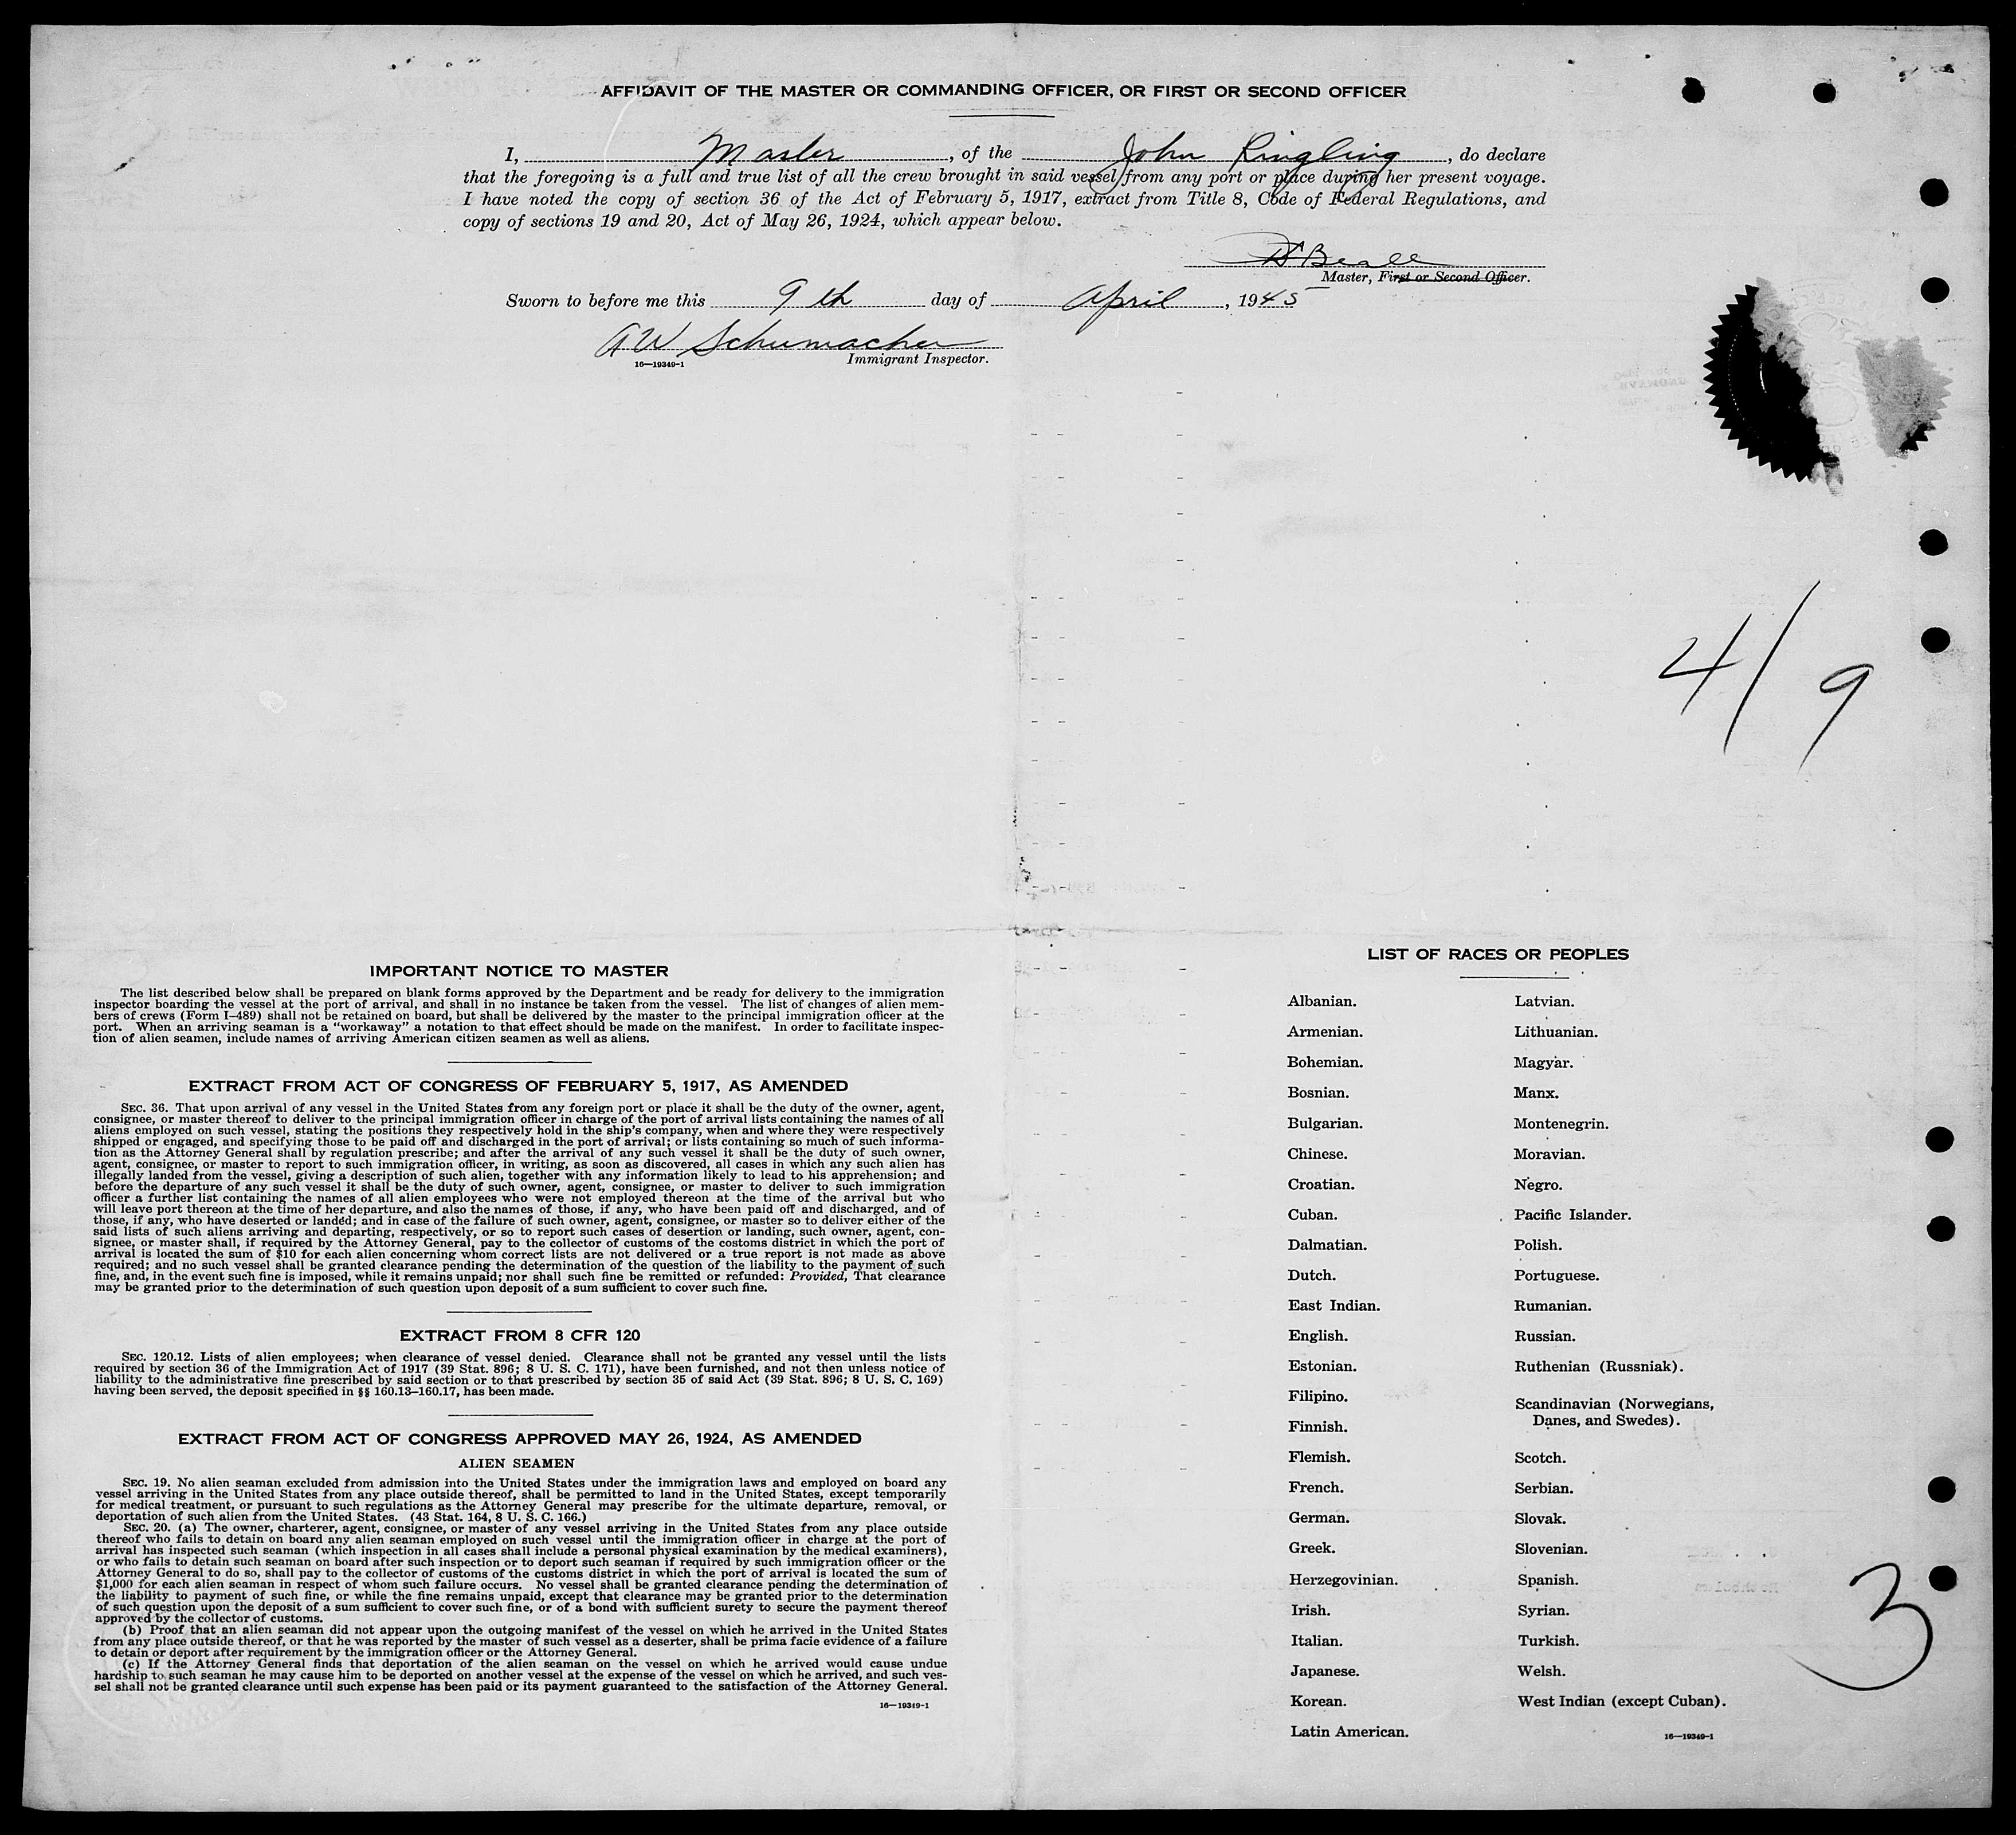 AFFIDAVIT OF THE MASTER OR COMMANDING OFFICER, OR FIRST OR SECOND OFFICER
I, Master, of the John Ringling, do declare
that the foregoing is a full and true list of all the crew brought in said vessel from any port or place during her present voyage.
I have noted the copy of section 36 of the Act of February 5, 1917, extract from Title 8, Code of Federal Regulations, and
copy of sections 19 and 20, Act of May 26, 1924, which appear below.
Beall
Master, First or Second Officer.
Sworn to before me this 9th day of April, 1945
A W Schumacher
16—19349-1 Immigrant Inspector.
4/9
IMPORTANT NOTICE TO MASTER
The list described below shall be prepared on blank forms approved by the Department and be ready for delivery to the immigration
inspector boarding the vessel at the port of arrival, and shall in no instance be taken from the vessel. The list of changes of alien mem-
bers of crews (Form I-489) shall not be retained on board, but shall be delivered by the master to the principal immigration officer at the
port. When an arriving seaman is a "workaway" a notation to that effect should be made on the manifest. In order to facilitate inspec-
tion of alien seamen, include names of arriving American citizen seamen as well as aliens.
EXTRACT FROM ACT OF CONGRESS OF FEBRUARY 5, 1917, AS AMENDED
SEC. 36. That upon arrival of any vessel in the United States from any foreign port or place it shall be the duty of the owner, agent,
consignee, or master thereof to deliver to the principal immigration officer in charge of the port of arrival lists containing the names of all
aliens employed on such vessel, stating the positions they respectively hold in the ship's company, when and where they were respectively
shipped or engaged, and specifying those to be paid off and discharged in the port of arrival; or lists containing so much of such informa-
tion as the Attorney General shall by regulation prescribe; and after the arrival of any such vessel it shall be the duty of such owner,
agent, consignee, or master to report to such immigration officer, in writing, as soon as discovered, all cases in which any such alien has
illegally landed from the vessel, giving a description of such alien, together with any information likely to lead to his apprehension; and
before the departure of any such vessel it shall be the duty of such owner, agent, consignee, or master to deliver to such immigration
officer a further list containing the names of all alien employees who were not employed thereon at the time of the arrival but who
will leave port thereon at the time of her departure, and also the names of those, if any, who have been paid off and discharged, and of
those, if any, who have deserted or landed; and in case of the failure of such owner, agent, consignee, or master so to deliver either of the
said lists of such aliens arriving and departing, respectively, or so to report such cases of desertion or landing, such owner, agent, con-
signee, or master shall, if required by the Attorney General, pay to the collector of customs of the costoms district in which the port of
arrival is located the sum of $10 for each alien concerning whom correct lists are not delivered or a true report is not made as above
required; and no such vessel shall be granted clearance pending the determination of the question of the liability to the payment of such
fine, and, in the event such fine is imposed, while it remains unpaid; nor shall such fine be remitted or refunded: Provided, That clearance
may be granted prior to the determination of such question upon deposit of a sum sufficient to cover such fine.
EXTRACT FROM 8 CFR 120
SEC. 120.12. Lists of alien employees; when clearance of vessel denied. Clearance shall not be granted any vessel until the lists
required by section 36 of the Immigration Act of 1917 (39 Stat. 896; 8 U. S. C. 171), have been furnished, and not then unless notice of
liability to the administrative fine prescribed by said section or to that prescribed by section 35 of said Act (39 Stat. 896; 8 U. S. C. 169)
having been served, the deposit specified in §§ 160.13–160.17, has been made.
EXTRACT FROM ACT OF CONGRESS APPROVED MAY 26, 1924, AS AMENDED
ALIEN SEAMEN
SEC. 19. No alien seaman excluded from admission into the United States under the immigration laws and employed on board any
vessel arriving in the United States from any place outside thereof, shall be permitted to land in the United States, except temporarily
for medical treatment, or pursuant to such regulations as the Attorney General may prescribe for the ultimate departure, removal, or
deportation of such alien from the United States. (43 Stat. 164, 8 U. S. C. 166.)
SEC. 20. (a) The owner, charterer, agent, consignee, or master of any vessel arriving in the United States from any place outside
thereof who fails to detain on board any alien seaman employed on such vessel until the immigration officer in charge at the port of
arrival has inspected such seaman (which inspection in all cases shall include a personal physical examination by the medical examiners),
or who fails to detain such seaman on board after such inspection or to deport such seaman if required by such immigration officer or the
Attorney General to do so, shall pay to the collector of customs of the customs district in which the port of arrival is located the sum of
$1,000 for each alien seaman in respect of whom such failure occurs. No vessel shall be granted clearance pending the determination of
the liability to payment of such fine, or while the fine remains unpaid, except that clearance may be granted prior to the determination
of such question upon the deposit of a sum sufficient to cover such fine, or of a bond with sufficient surety to secure the payment thereof
approved by the collector of customs.
(b) Proof that an alien seaman did not appear upon the outgoing manifest of the vessel on which he arrived in the United States
from any place outside thereof, or that he was reported by the master of such vessel as a deserter, shall be prima facie evidence of a failure
to detain or deport after requirement by the immigration officer or the Attorney General.
(c) If the Attorney General finds that deportation of the alien seaman on the vessel on which he arrived would cause undue
hardship to such seaman he may cause him to be deported on another vessel at the expense of the vessel on which he arrived, and such ves-
sel shall not be granted clearance until such expense has been paid or its payment guaranteed to the satisfaction of the Attorney General.
16—19349-1
LIST OF RACES OR PEOPLES
Albanian.
Armenian.
Bohemian.
Bosnian.
Bulgarian.
Chinese.
Croatian.
Cuban.
Dalmatian.
Dutch.
East Indian.
English.
Estonian.
Filipino.
Finnish.
Flemish.
French.
German.
Greek.
Herzegovinian.
Irish.
Italian.
Japanese.
Korean.
Latin American.
Latvian.
Lithuanian.
Magyar.
Manx.
Montenegrin.
Moravian.
Negro.
Pacific Islander.
Polish.
Portuguese.
Rumanian.
Russian.
Ruthenian (Russniak).
Scandinavian (Norwegians,
Danes, and Swedes).
Scotch.
Serbian.
Slovak.
Slovenian.
Spanish.
Syrian.
Turkish.
Welsh.
West Indian (except Cuban).
16—19349-1
3